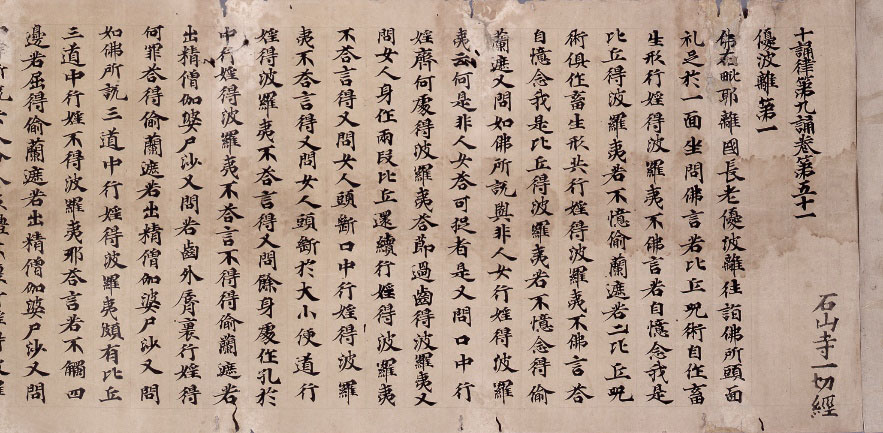 石山寺一切經
十誦律第九誦卷第五十一
優波離第一
佛在毗耶離國長老優波離往詣佛所頭面
礼足於一面坐問佛言若比丘呪術自作畜
生形行婬得波羅夷不佛言若自憶念我是
比丘得波羅夷若不憶偷蘭遮若二比丘呪
術俱作畜生形共行婬得波羅夷不佛言若
自憶念我是比丘得波羅夷若不憶念得偷
蘭遮又問如佛所說與非人女行婬得波羅
夷云何是非人女荅可捉者是又問口中行
婬齊何處得波羅夷荅節過齒得波羅夷又
問女人身作兩段比丘還續行婬得波羅夷
不荅言得又問女人頭斷口中行婬得波羅
夷不荅言得又問女人頭斷於大小便道行
婬得波羅夷不荅言得又問餘身處作孔於
中行婬得波羅夷不荅言不得得偷蘭遮若
出精僧伽婆尸沙又問若齒外脣裏行婬得
何罪荅得偷蘭遮若出精僧伽婆尸沙又問
如佛所說三道中行婬得波羅夷頗有比丘
三道中行婬不得波羅夷耶荅言若不觸四
邊若屈得偷蘭遮若出精僧伽婆尸沙又問